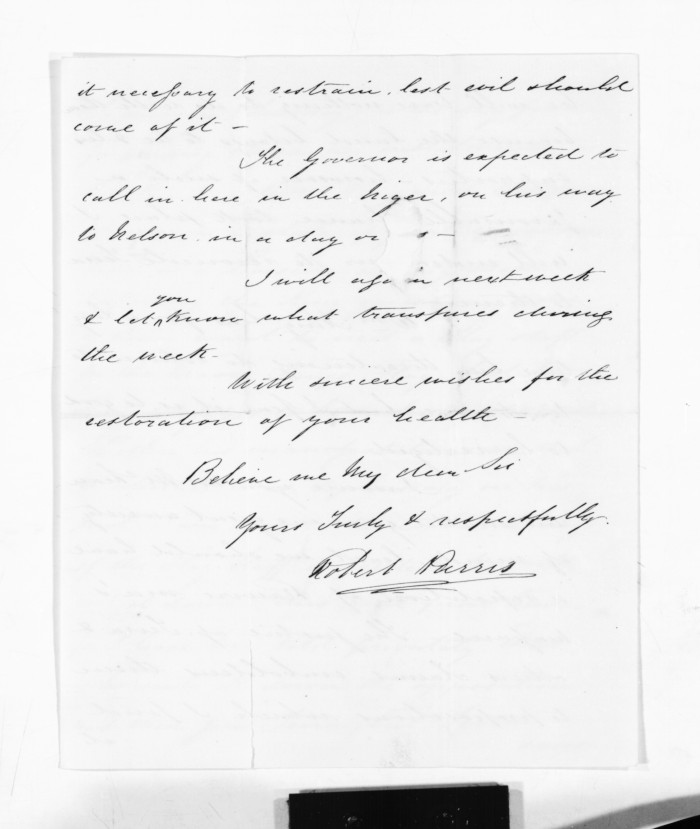 it necessary to restrain, lest evil should
come of it —
The Governor is expected to
call in here in the Niger, on his way
to Nelson in a day or —
I will again next week
& let you know what transpires during
the week —
With sincere wishes for the
restoration of your health —
Believe me My dear Sir
Yours Truly & respectfully.
Robert Parris